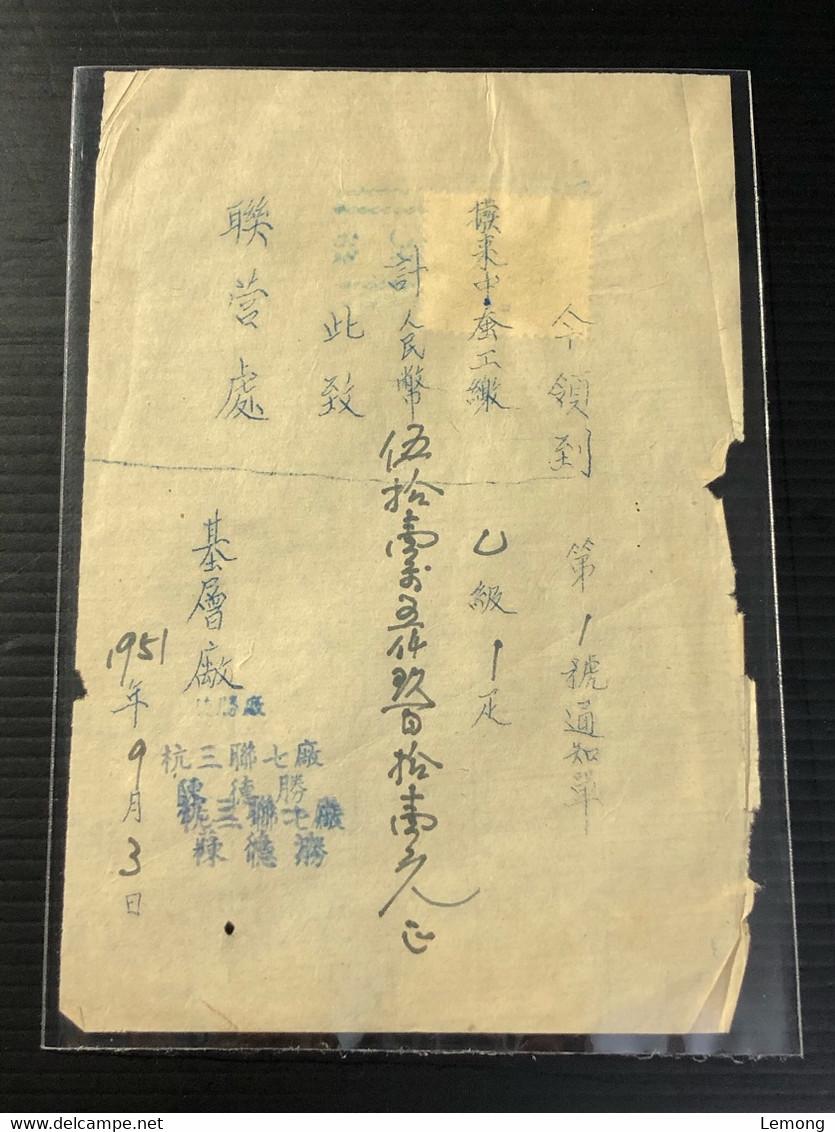 今領到 第1號通知單
東中蚕工繳 乙級1疋
計人民幣伍拾壹萬五仟玖百拾壹元正
此致
聯營處
基層廠
勝廠
杭三聯七廠
陳德勝
杭三聯七廠
陳德勝
1951年9月3日
Lemong
delcampe.net